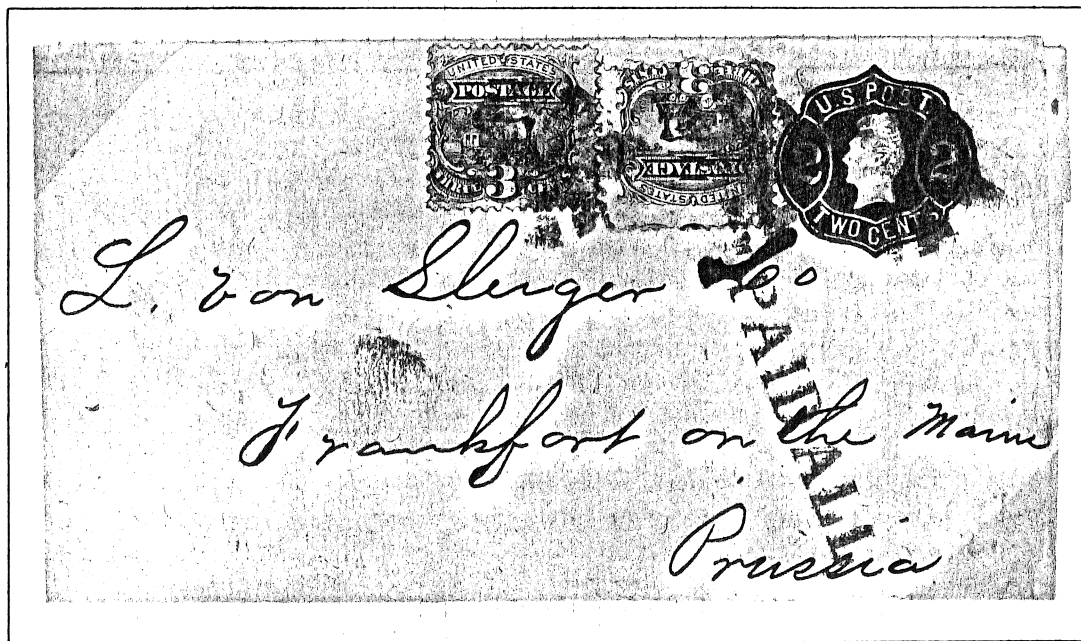 UNITED STATES
POSTAGE
3
POSTAGE
UNITED STATES
U.S. POST
2 2
TWO CENTS
L. von Sleiger
PAID ALL
Frankfort on the Maine
Prussia